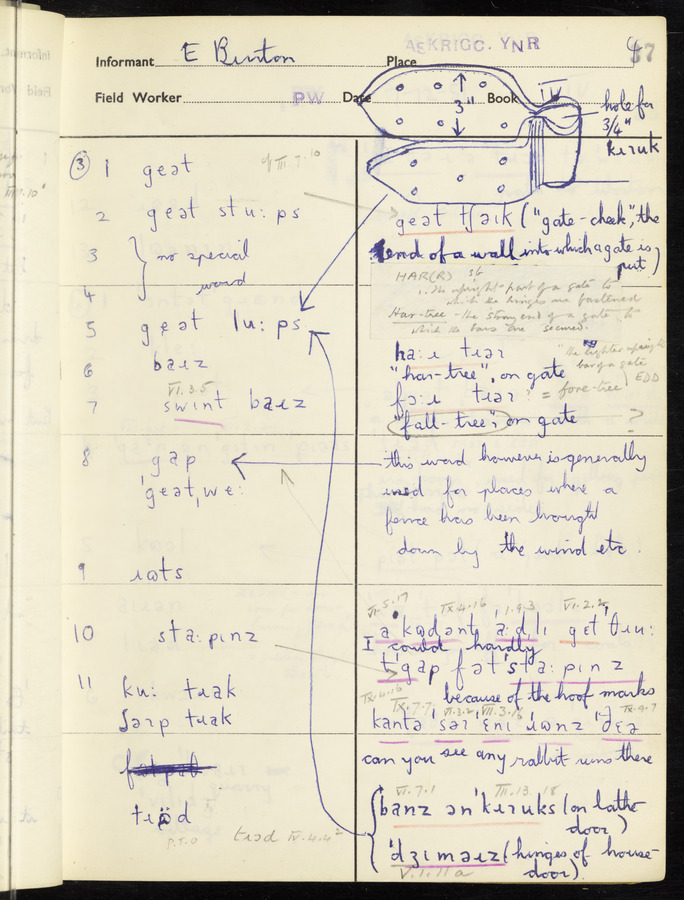 Informant E Burton Place ASKRIGG. YNR
Field Worker PW Date Book IV
3"
hole for
3/4"
kɪruk
③ 1 geət
cf III.7.10
2 geət stu:ps
3 } no special
4 } word
5 geət lu:ps
6 baɪz
VI.3.5
7 swɪnt baɪz
8 gap
ˈgeətˌwe:
9 ɹɷts
10 sta:pɪnz
11 ku: tɹak
ʃəɹp tɹak
tɹɷd
P.T.O tɹɷd IV.4.4
geət tʃɑɪk ("gate-cheek", the
end of a wall into which a gate is
put)
HAR(R) sb
1. The upright part of a gate to
which the hinges are fastened
Har-tree - the strong end of a gate to
which the bars are secured.
ha:ɹ tɹɪə
"har-tree", on gate
"the lighter upright
bar of a gate
fɔ:ɹ tɹɪə = fore-tree) EDD
"fall-tree", on gate ?
this word however is generally
used for places where a
fence has been brought
down by the wind etc.
VI.5.17 IX.4.16 VI.2.2
a ˈkɷdənt ˈa:dlɪ get ˈθɹu:
I could hardly
tˈgap fətˈsta:pɪnz
IX.4.16 because of the hoof marks
IX.7.7 VI.3.2 VII.3.16 IX.9.7
kantə ˈsəɹ ˈɛnɪ ˈɹɷnz ˈðɛə
can you see any rabbit runs there
VI.7.1 III.13.18
banz ən ˈkɪruks (on lathe
door)
ˈdʒɪməɪz (hinges of house-
door).
V.1.11a